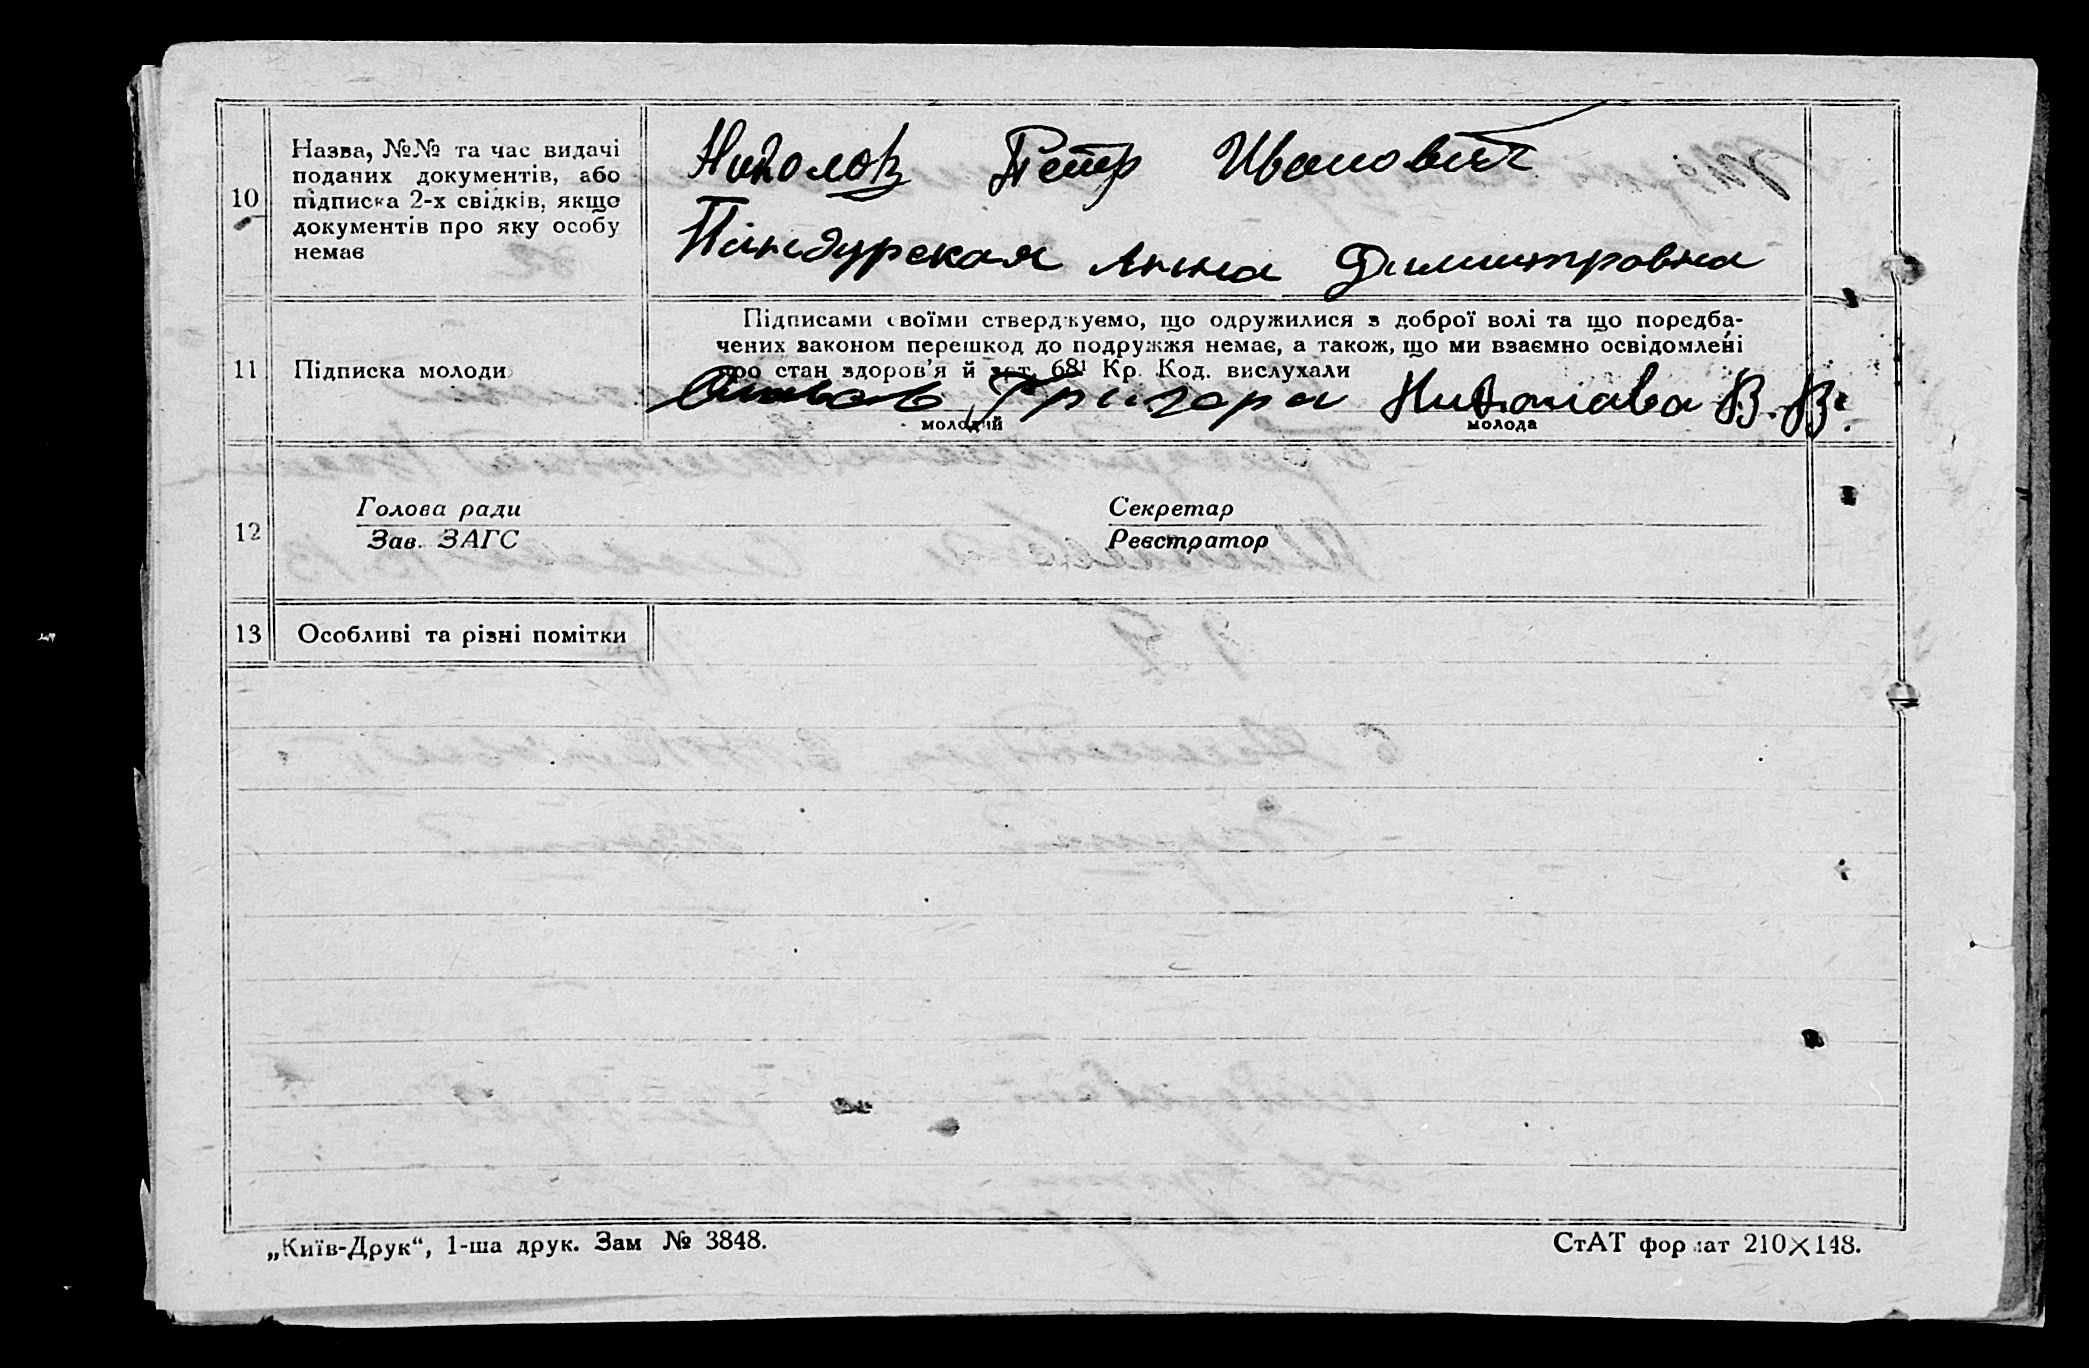 10
Назва, №№ та час видачі
поданих документів, або
підписка 2-х свідків, якщо
документів про яку особу
немає
Николов Петр Иванович
Пандурская Анна Димитровна
11
Підписка молоди
Підписами своїми стверджуємо, що одружилися з доброї волі та що поредба-
чених законом перешкод до подружжя немає, а також, що ми взаємно освідомлені
про стан здоров'я й аст. 68¹ Кр. Код. вислухали
Григори Николаева В. В.
молодий
молода
12
Голова ради
Зав. ЗАГС
Секретар
Реєстратор
13
Особливі та різні помітки
„Київ-Друк“, 1-ша друк. Зам № 3848.
СтАТ формат 210×148.